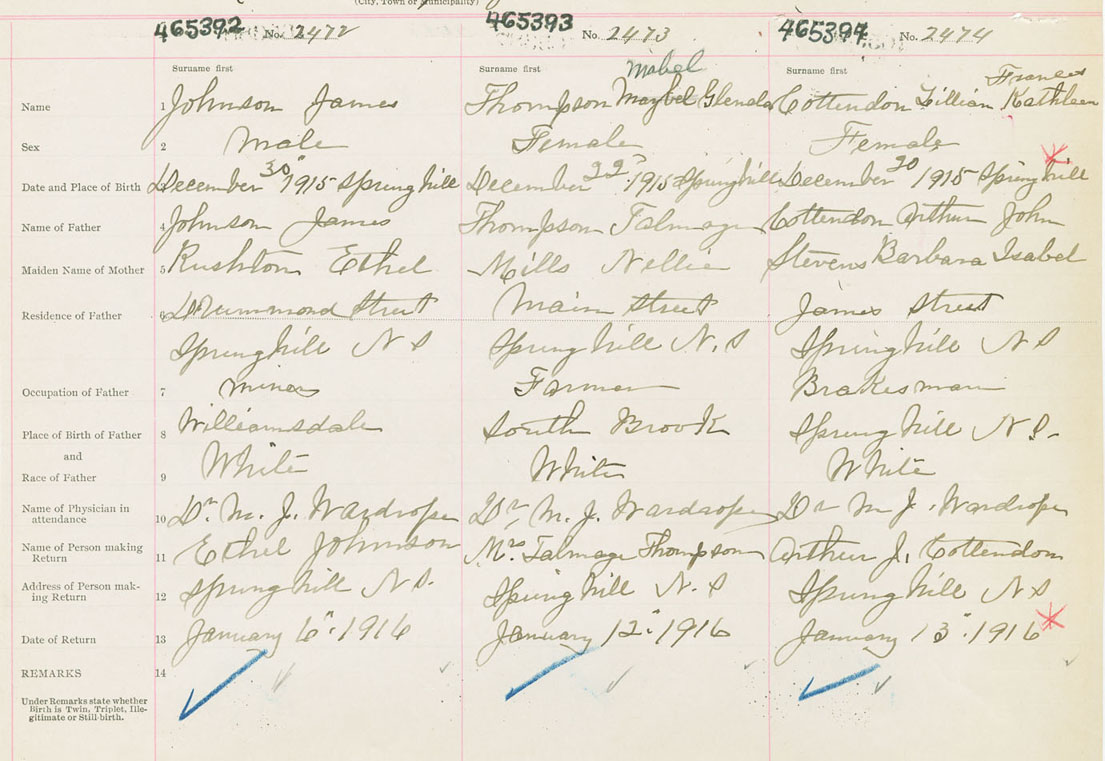 (City, Town or Municipality)
465392 No. 2472 465393 No. 2473 465394 No. 2474
Surname first Surname first Mabel Surname first Frances
Name 1 Johnson James Thompson Maybel Glenda Cottendon Lillian Kathleen
Sex 2 Male Female Female
Date and Place of Birth December 30" 1915 Springhill December 22" 1915 Springhill December 20 1915 Springhill
Name of Father 4 Johnson James Thompson Talmage Cottendon Arthur John
Maiden Name of Mother 5 Rushton Ethel Mills Nellie Stevens Barbara Isabel
Residence of Father 6 Drummond Street Main Street James Street
Springhill N S Springhill N. S Springhill N S
Occupation of Father 7 Miner Farmer Brakesman
Place of Birth of Father 8 Williamsdale South Brook Springhill N S.
and
Race of Father 9 White White White
Name of Physician in
attendance 10 Dr. M. J. Wardrope Dr. M. J. Wardrope Dr M J. Wardrope
Name of Person making
Return 11 Ethel Johnson Mrs Talmage Thompson Arthur J. Cottendon
Address of Person mak-
ing Return 12 Springhill N S. Springhill N. S Springhill N S
Date of Return 13 January 6". 1916 January 12". 1916 January 13". 1916
REMARKS 14
Under Remarks state whether
Birth is Twin, Triplet, Ille-
gitimate or Still-birth.